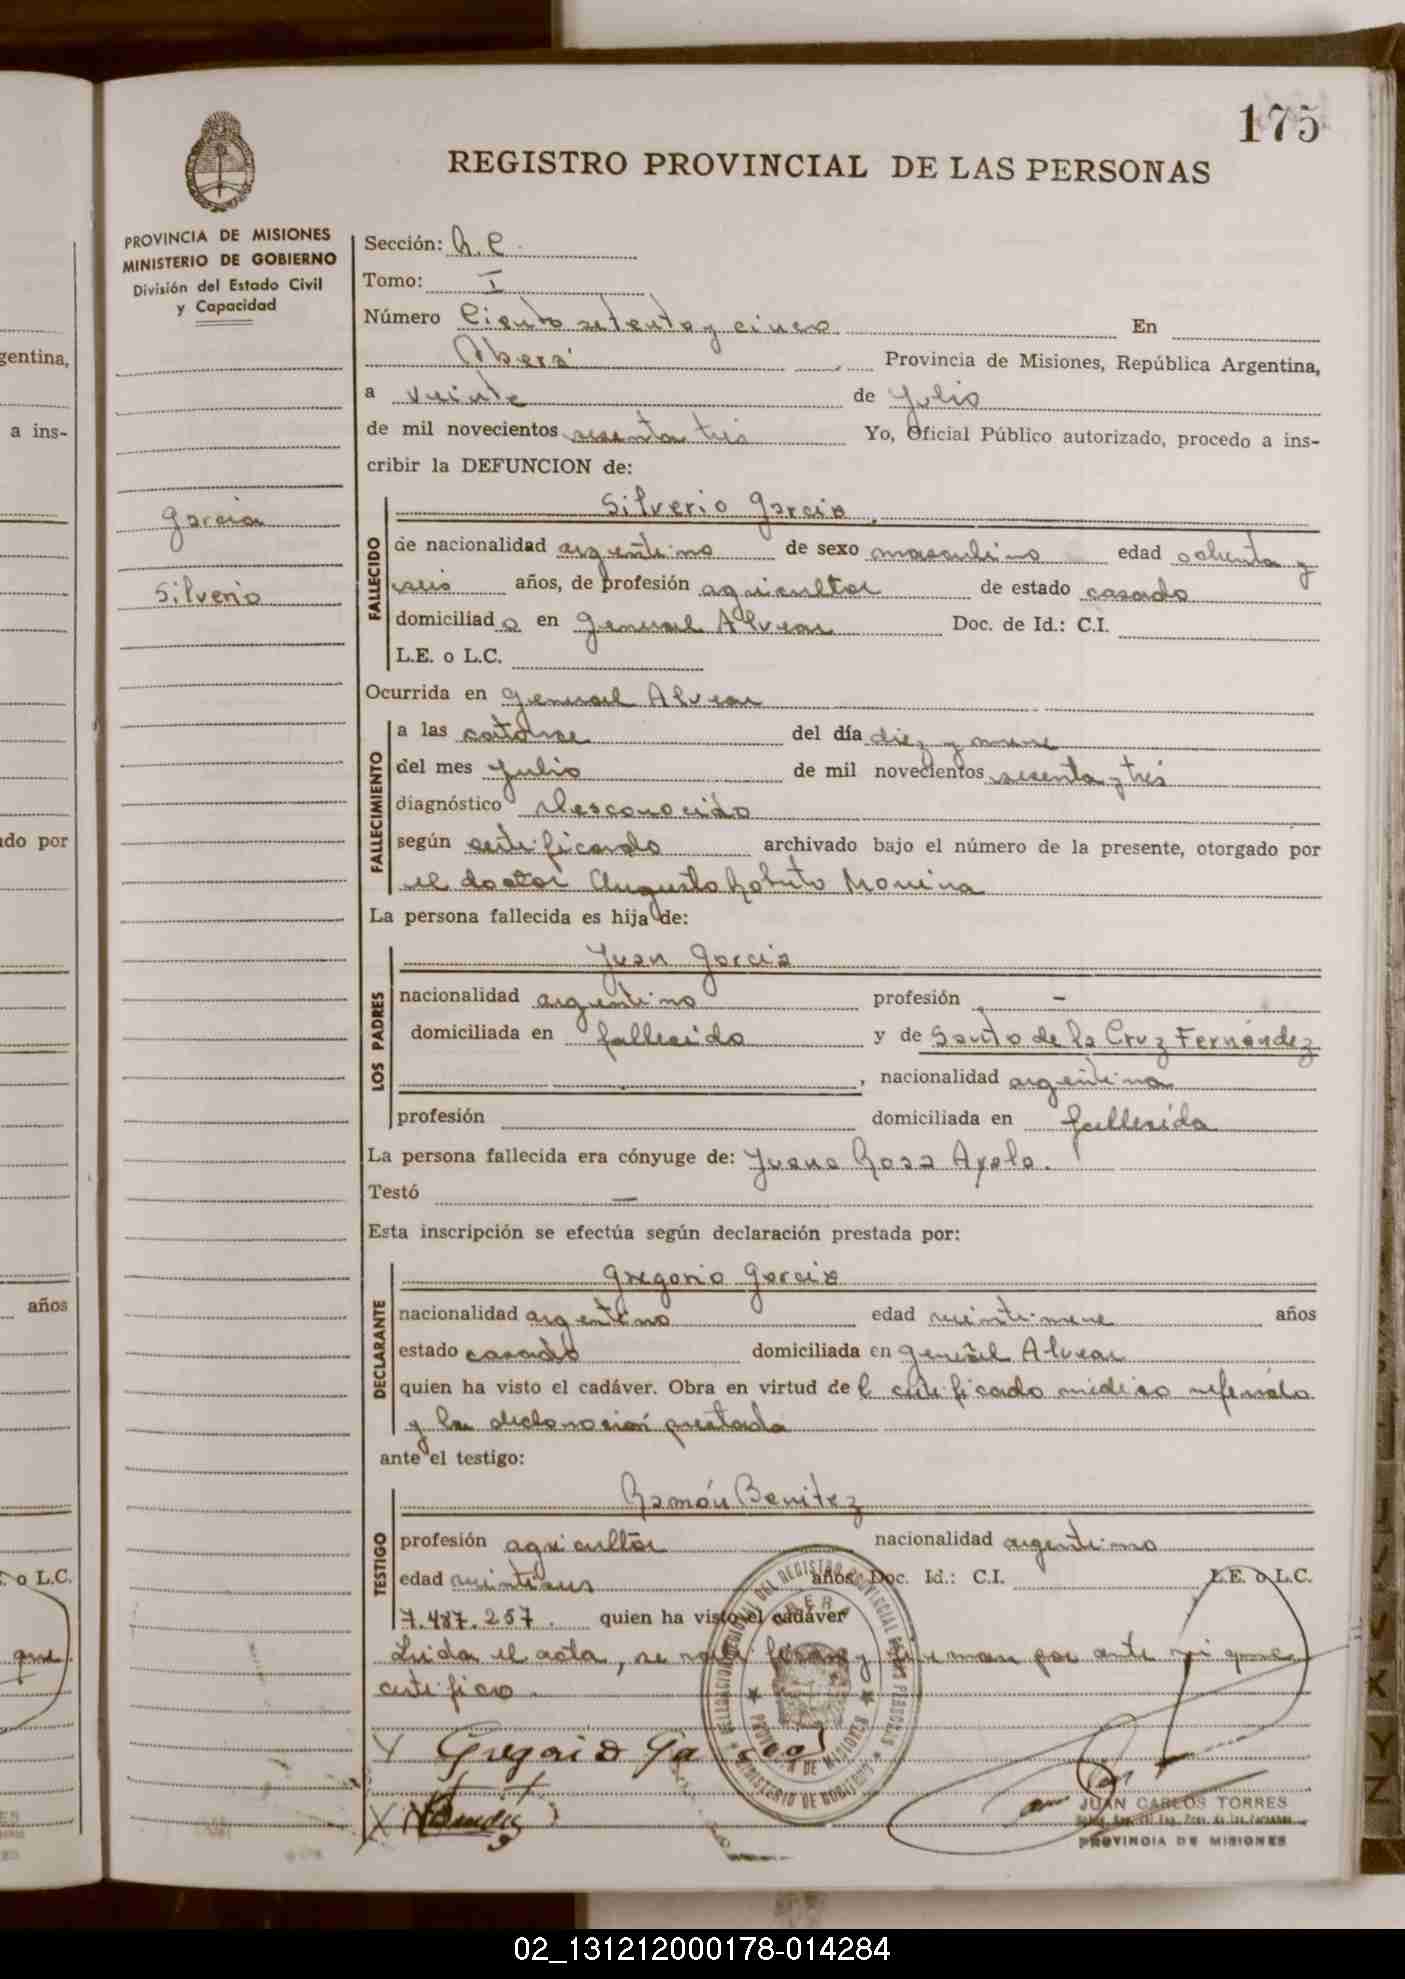 175
REGISTRO PROVINCIAL DE LAS PERSONAS
PROVINCIA DE MISIONES
MINISTERIO DE GOBIERNO
División del Estado Civil
y Capacidad
Garcia
Silverio
Sección:
Tomo: I
Número Ciento setenta y cinco En
Oberá Provincia de Misiones, República Argentina,
a veinte de Julio
de mil novecientos sesenta tres Yo, Oficial Público autorizado, procedo a ins-
cribir la DEFUNCION de:
FALLECIDO
Silverio Garcia
de nacionalidad argentino de sexo masculino edad ochenta y
seis años, de profesión agricultor de estado casado
domiciliado en General Alvear Doc. de Id.: C.I.
L.E. o L.C.
Ocurrida en General Alvear
FALLECIMIENTO
a las catorce del día diez y nueve
del mes Julio de mil novecientos sesenta y tres
diagnóstico Desconocido
según certificado archivado bajo el número de la presente, otorgado por
el doctor Augusto Roberto
La persona fallecida es hija de:
LOS PADRES
Juan Garcia
nacionalidad argentino profesión -
domiciliada en fallecido y de Santo de la Cruz Fernández
, nacionalidad argentina
profesión domiciliada en fallecida
La persona fallecida era cónyuge de: Juana Rosa Ayala.
Testó —
Esta inscripción se efectúa según declaración prestada por:
DECLARANTE
Gregorio Garcia
nacionalidad argentino edad veintinueve años
estado casado domiciliada en General Alvear
quien ha visto el cadáver. Obra en virtud de l certificado médico referido
y la declaración prestada
ante el testigo:
TESTIGO
Ramón Benitez
profesión agricultor nacionalidad argentino
edad veintiseis años, Doc. Id.: C.I. L.E. o L.C.
7.487.257. quien ha visto el cadáver
Leida el acta, se firman por ante mi que
certifico.
DELEGACION DEL REGISTRO PROVINCIAL DE LAS PERSONAS
OBERA
PROVINCIA DE MISIONES
MINISTERIO DE GOBIERNO
Gregorio Garcia
JUAN CARLOS TORRES
PROVINCIA DE MISIONES
gentina,
a ins-
do por
años
E. o L.C.
que
J
K
Y
Z
02_131212000178-014284